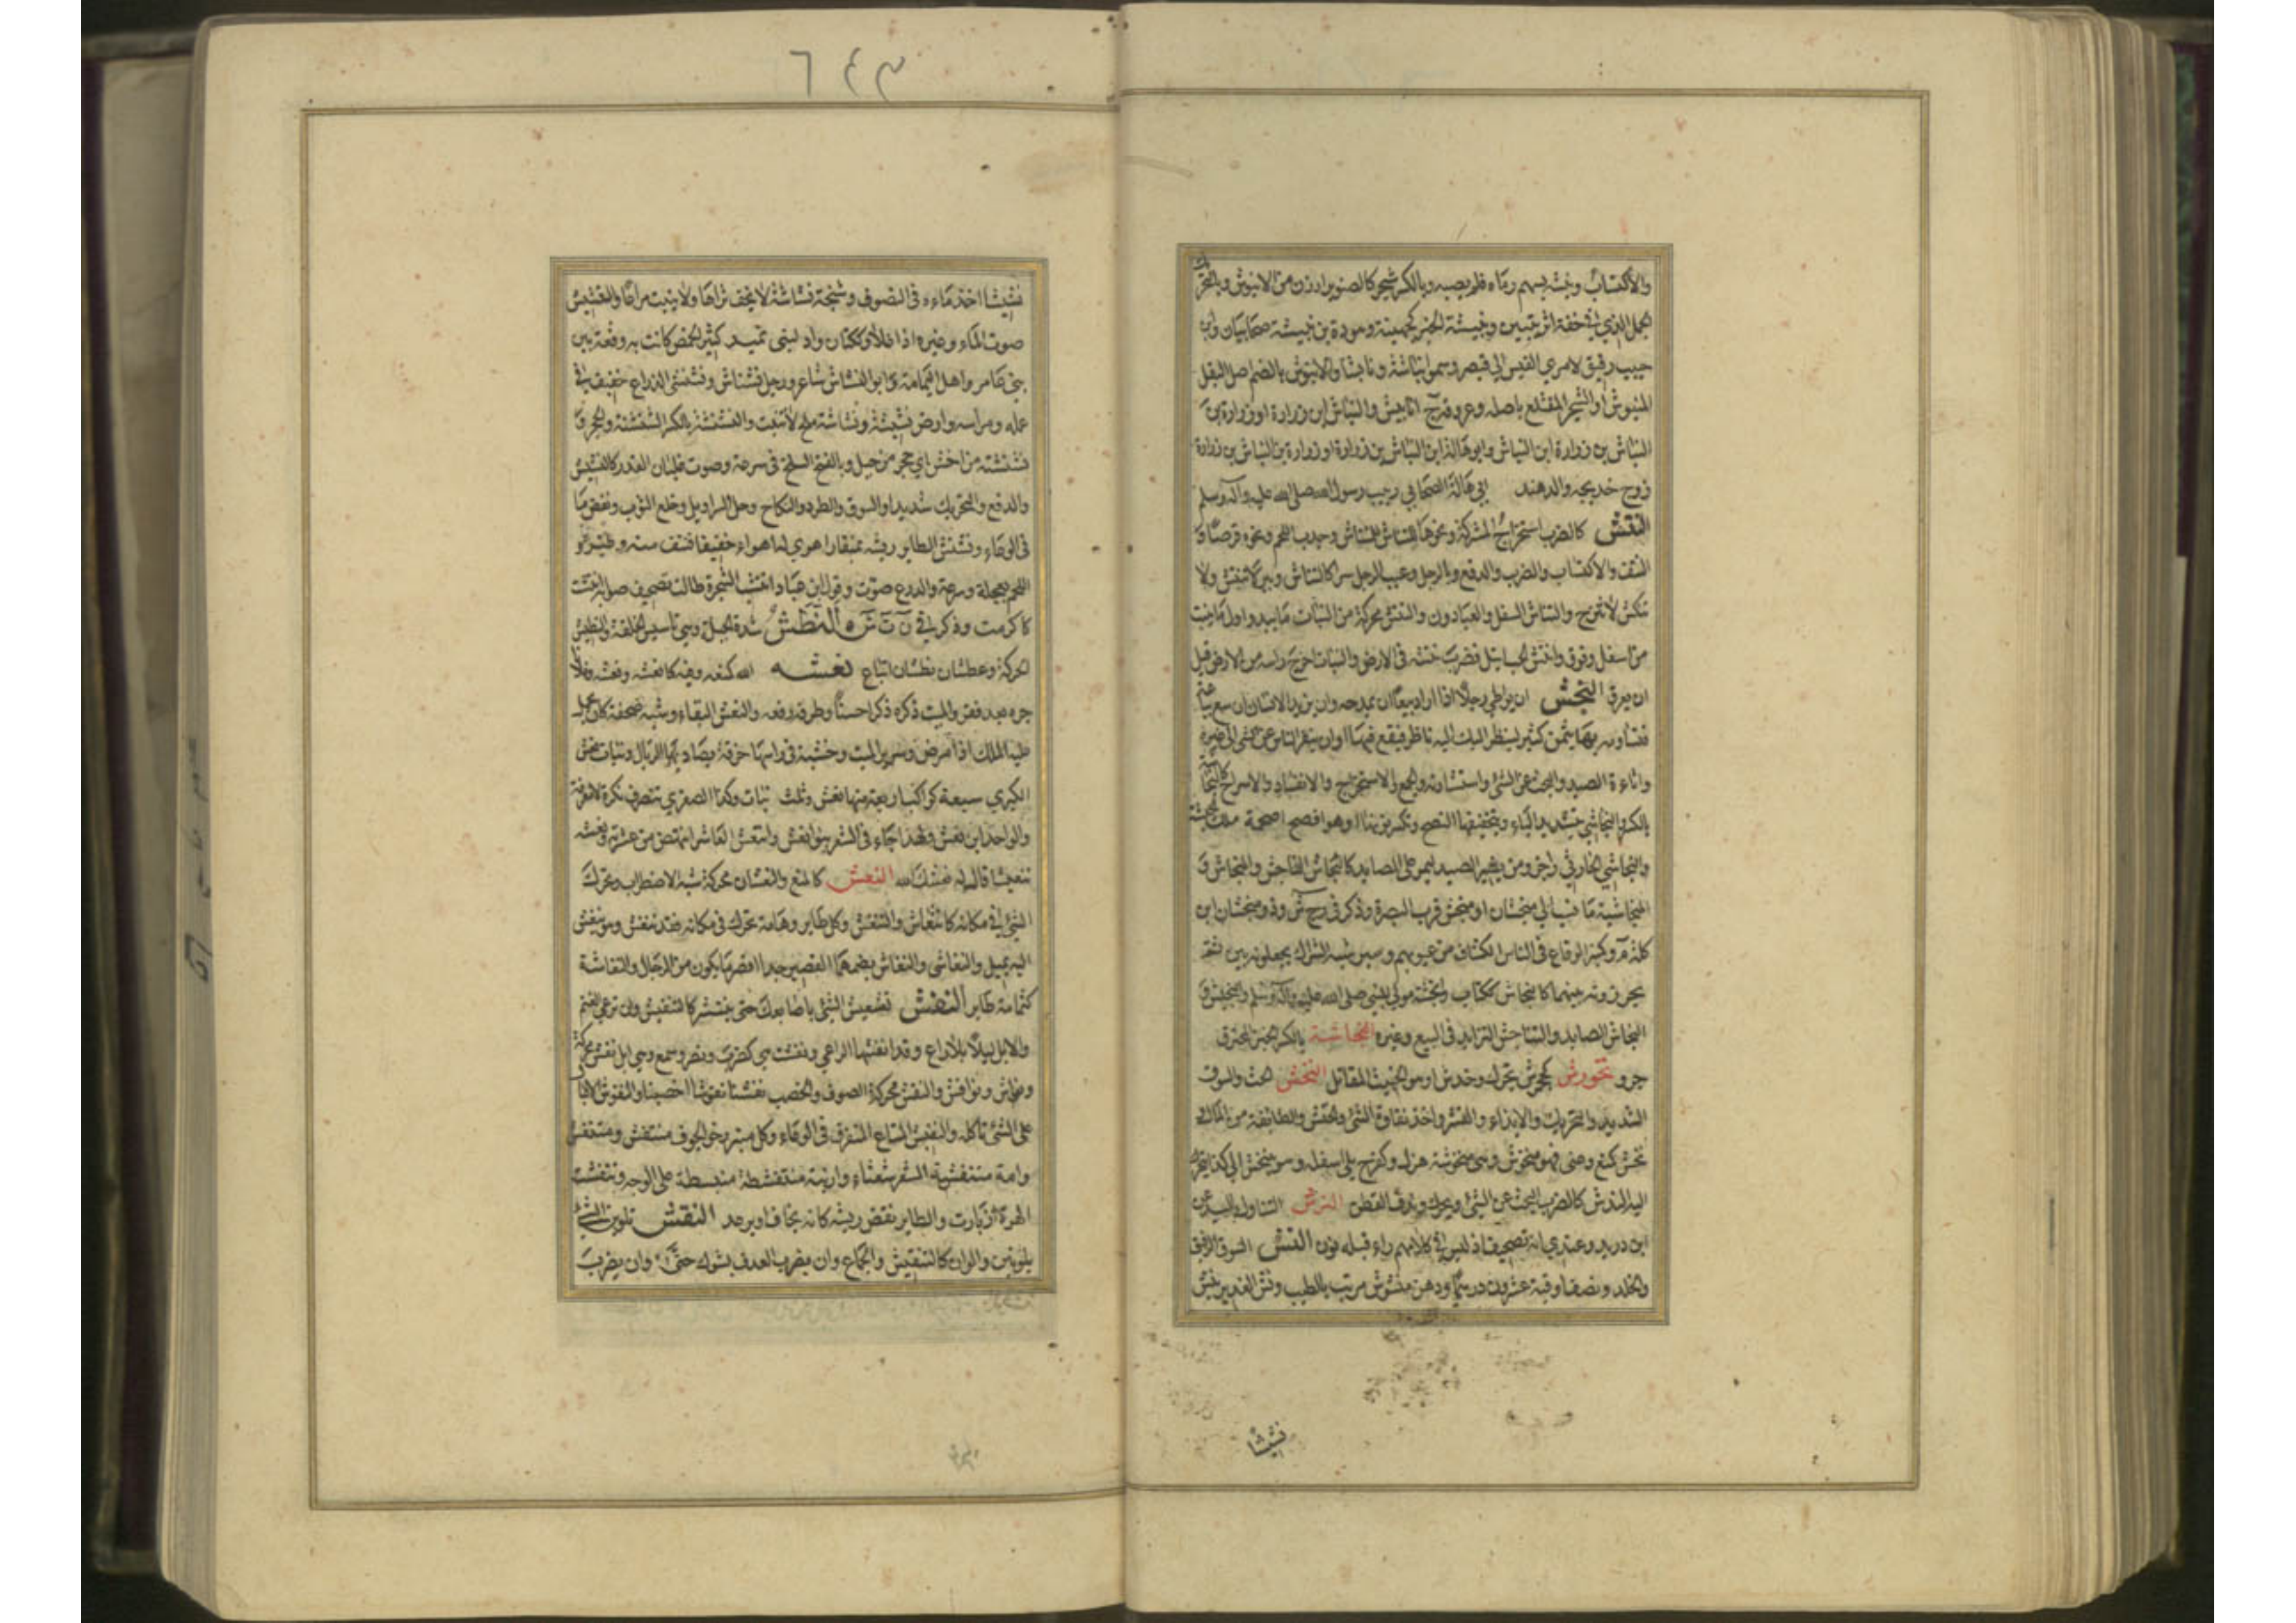 والاكتساب ونبشه بسهم رماه فلم يصبه وبالكسر شجر كالصنوبر ارزن من الابنوس وبالتحر
الجمل الذي في خفه اثر يتبين ونبيشة الخير كجهينة وهوذة بن نبيشة صحابيان وابن
حبيب رفيق لامرئ القيس الى قيصر وسموا نباشة ونابشا والانبوش بالضم اصل البقل
المنبوش او الشجر المقتلع باصله وعروقه ج انابيش والنباش ابن زرارة او زرارة بن
النباش بن زرارة ابن النباش وابو هالة ابن النباش بن زرارة او زرارة بن النباش بن زرارة
زوج خديجة والد هند ابي هالة الصحابي ربيب رسول الله صلى الله عليه وآله وسلم
النتش كالضرب استخراج الشوكة ونحوها بالمنتاش للمنقاش وجذب اللحم ونحوه قرصا و
النتف والاكتساب والضرب والدفع بالرجل وعيب الرجل سرا كالتنتاش وبئر لا تنتش ولا
تنكش لا تنزح والنتاش السفل والعيارون والنتش محركة من النبات ما يبدو اول ما ينبت
من اسفل وفوق وانتش الحب ابتل فضرب نتشه في الارض والنبات اخرج راسه من الارض قبل
ان يعرق النجش ان تواطئ رجلا اذا اراد بيعا ان تمدحه وان يريد الانسان ان يبيع بياعة
فتساومه بها بثمن كثير لينظر اليك ناظر فيقع فيها او ان ينفر الناس عن الشئ الى غيره
واثارة الصيد والبحث عن الشئ واستثارته والجمع والاستخراج والانقياد والاسراع كالنجاشة
بالكسر والنجاشي بتشديد الياء وبتخفيفها افصح وتكسر نونها او هو افصح اصحمة ملك الحبشة
والنجاشي الحارثي راجز ومن يثير الصيد ليمر على الصايد كالنجاش الناجش والمنجاش و
المنجاشية ماء نسب الى منجشان او منجش قرب البصرة وذكر في م ج ش وذو منجشان ابن
كلة م وكمنبر الوقاع في الناس الكشاف عن عيوبهم وسير شبه الشراك يجعلونه بين
يخرزونه بينهما كالنجاش ككتاب وانجشة مولى للنبي صلى الله عليه وآله وسلم والنجيش و
النجاش الصايد والتناجش التزايد في البيع وغيره النخاشة بالكسر الخبز المحترق
جرو نخورش كجحمرش يتحرك وخدش او هو الخبيث المقاتل النخش الحث والسوق
الشديد والتحريك والايذاء والقشر واخذ نقاوة الشئ والخدش والطايفة من المال و
نخش كمنع وعني فهو منخوش وهي منخوشة هزل وكفرح بلي اسفله وهو منخش الى كذا
اليه الندش كالضرب البحث عن الشئ ويحرك وندف القطن النرش التناول باليد عن
ابن دريد وعندي انه تصحيف اذ ليس في كلامهم راء قبلها نون النش السوق الرفيق
والخلط ونصف اوقية عشرون درهما ودهن منشوش مربب بالطيب ونش الغدير ينش
نشيشا
٦٤٣
نشيشا اخذ ماءه في النضوب وسبخة نشاشة لا يجف ثراها ولا ينبت مرعاها والنشيش
صوت الماء وغيره اذا غلا وككتان واد لبني نمير كثير الحمض كانت به وقعة بين
بني عامر واهل اليمامة وابو النشاش شاعر ورجل نشناش ونشنشي الذراع خفيف في
عمله ومراسه وارض نشيشة ونشاشة ملح لا تنبت والنشنشة بالكسر الشنشنة والحجر و
نشنشة من اخشن اي حجر من جبل وبالفتح السلخ في سرعة وصوت غليان القدر كالنشيش
والدفع والتحريك شديدا والسوق والطرد والنكاح وحل السراويل وخلع الثوب ونفض ما
في الوعاء ونشنش الطاير ريشه بمنقاره اهوى له اهواء خفيفا فنتف منه وطيره و
اللحم بعجلة وسرعة والدرع صوتت وقول ابن عباد انتشت الشجرة طالت تصحيف صوابه انتشت
كاكرمت وذكر في ن ت ش ه النطش شدة الجبلة وهي تاسيس الخلقة والنطيش
الحركة وعطشان نطشان اتباع نعشه الله كنعه رفعه كانعشه ونعشه وفلانا
جبره بعد فقر والميت ذكره ذكرا حسنا وطرفه رفعه والنعش البقاء وشبه محفة كان يحمل
عليها الملك اذا مرض وسرير الميت وخشبة في راسها خرقة يصاد بها الرئال وبنات نعش
الكبرى سبعة كواكب اربعة منها نعش وثلث بنات وكذا الصغرى تنصرف نكرة لا معرفة
والواحد ابن نعش ولهذا جاء في الشعر بنو نعش وانتعش العاثر انتهض من عثرته ونعشه
تنعيشا قال له نعشك الله النغش كالمنع والنغشان محركة شبه الاضطراب وتحرك
الشئ في مكانه كالانتغاش والتنغش وكل طاير وهامة تحرك في مكانه فقد تنغش وهو ينغش
اليه يميل والنغاشي والنغاش بضمهما القصير جدا اقصر ما يكون من الرجال والنغاشة
كثمامة طاير النفش تشعيث الشئ باصابعك حتى ينتشر كالتنفيش وان ترعى الغنم
والابل ليلا بلا راع وقد انفشها الراعي ونفشت هي كضرب ونصر وسمع وهي ابل نفش محركة
ونفاش ونوافش والنفش محركة الصوف والخصب نفشنا نفوشا اخصبنا والنفوش الاقبال
على الشئ تاكله والنفيش المتاع المتفرق في الوعاء وكل منتبر رخو الجوف منتفش ومتنفش
وامة متنفشة الشعر شعثاء وارنبة متنفشة منبسطة على الوجه وتنفشت
الهرة ازبارت والطاير نفض ريشه كانه يخاف او يرعد النقش تلوين الشئ
بلونين والوان كالتنقيش والجماع وان يضرب العذق بشوك حتى وان يضرب